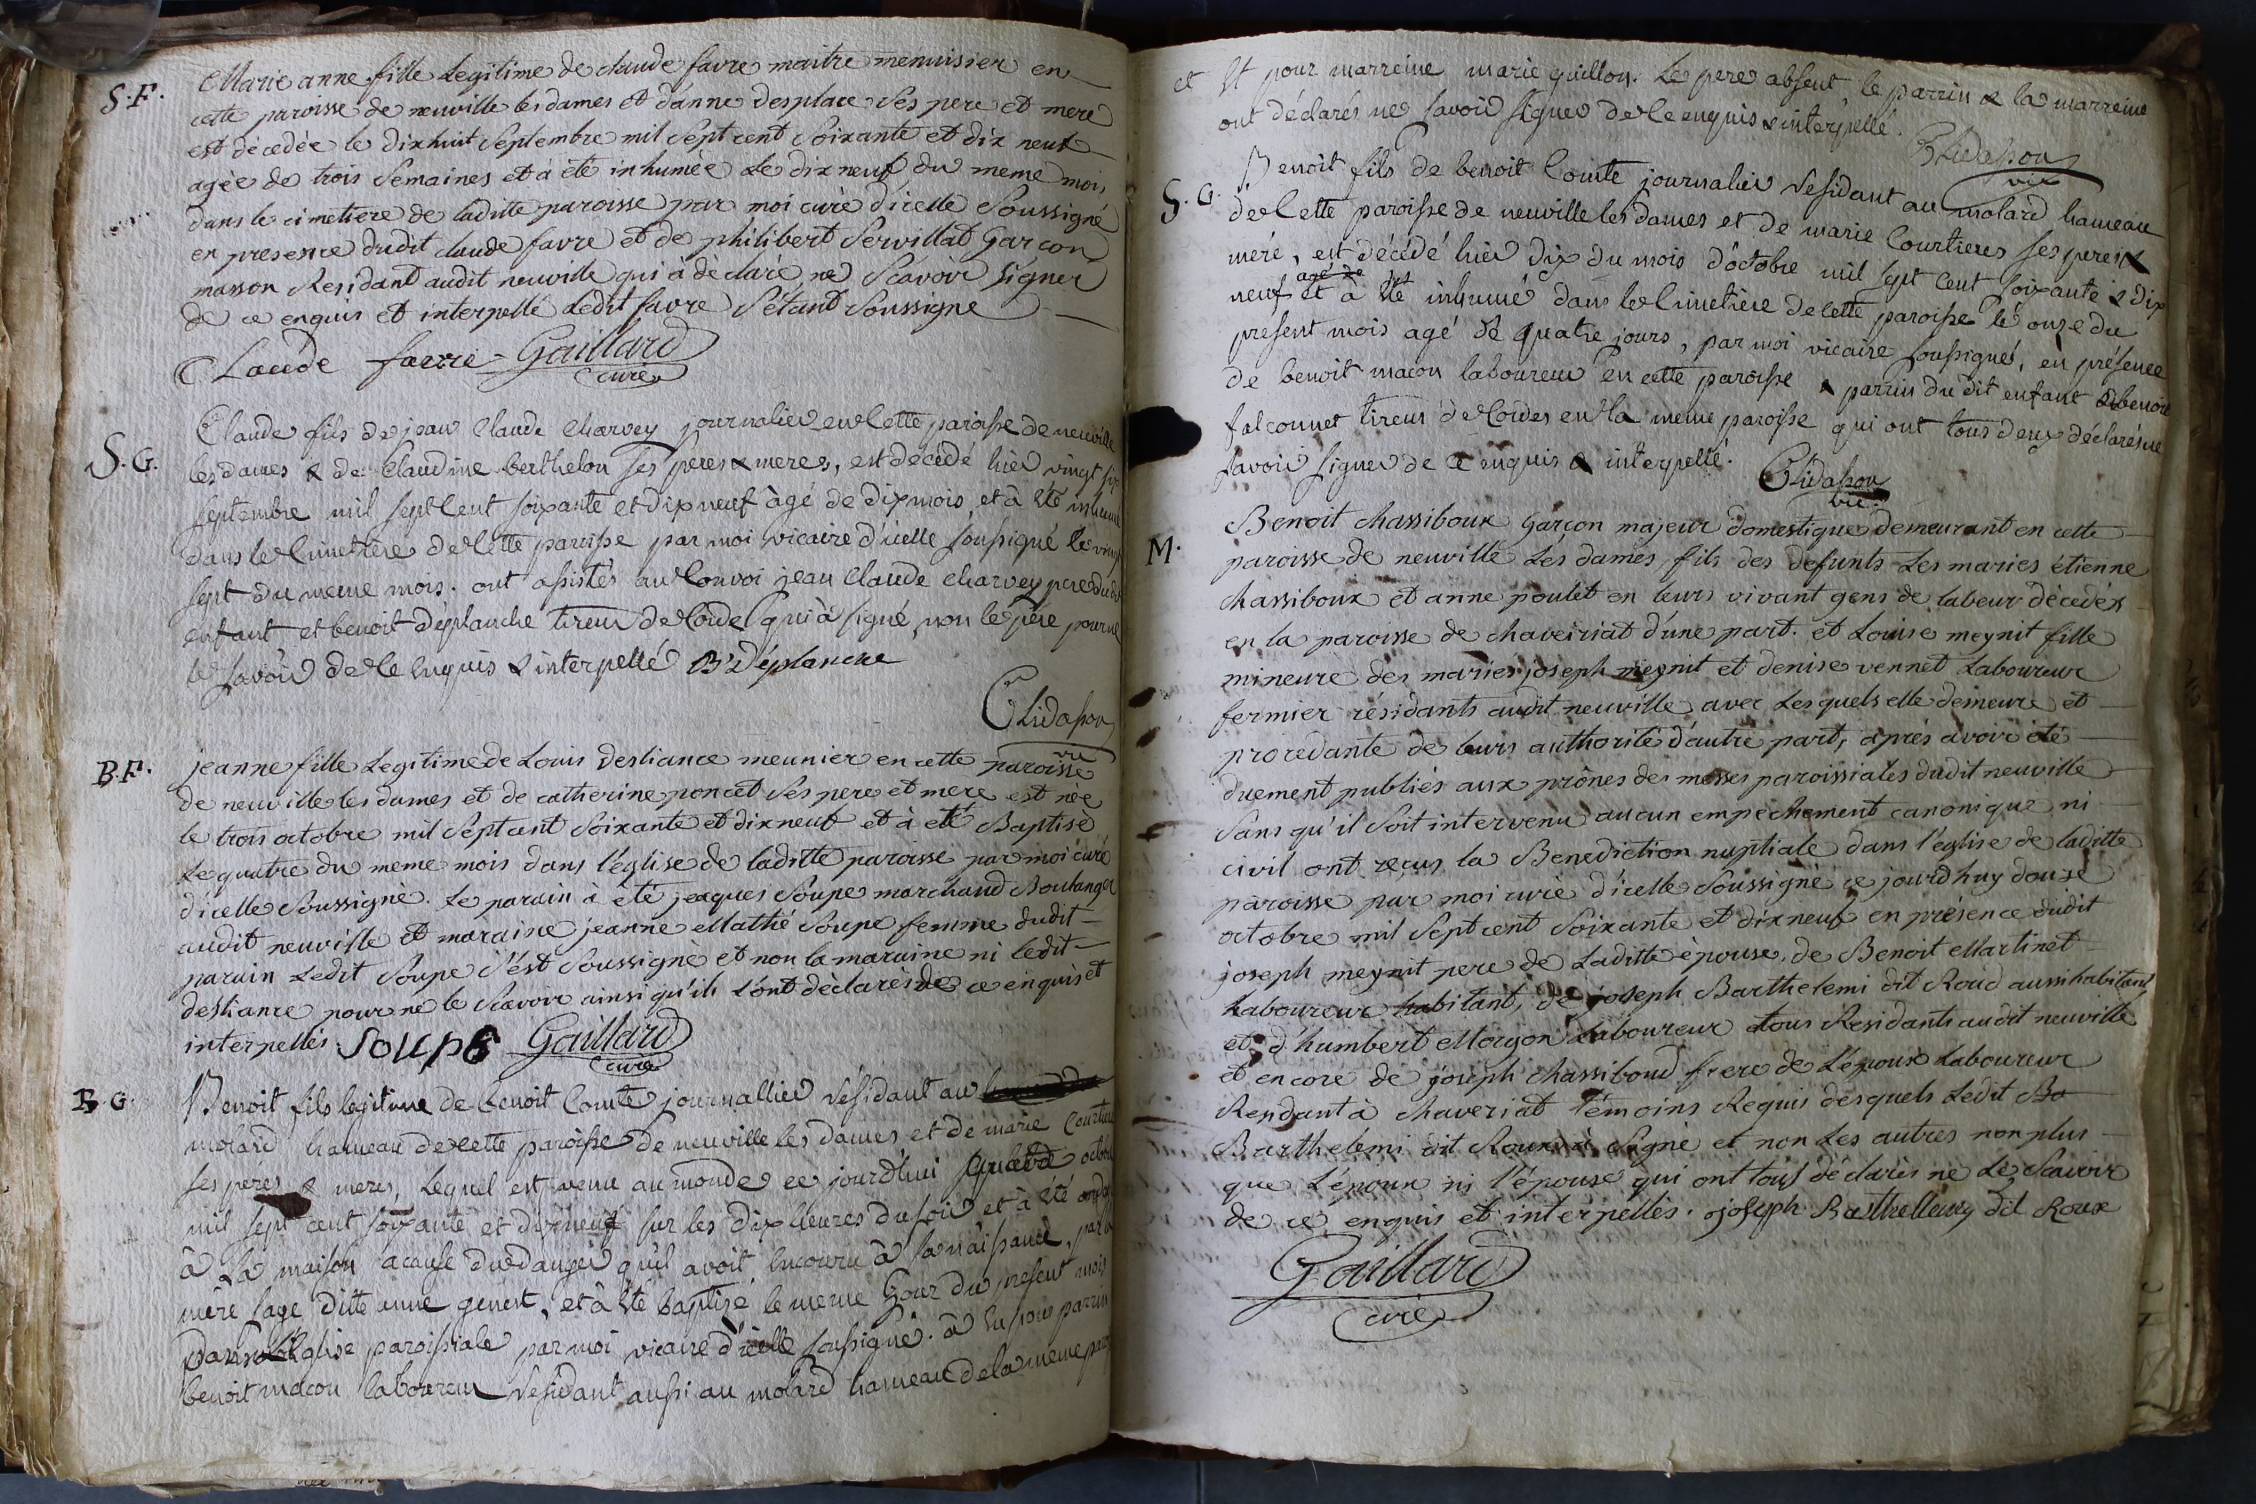 S. F.
Marie anne fille Legitime de claude favre maitre menuisier en
cette paroisse de neuville les dames et d'anne desplace ses pere et mere
est décedée le dixhuit septembre mil sept cent soixante et dix neuf
agée de trois semaines et à été inhumée Le dix neuf du meme mois
dans le cimetiere de laditte paroisse par moi curé d'icelle soussigné
en presence dudit claude favre et de philibert servillat Garcon
masson Residant audit neuville qui à déclaré ne scavoir signer
de ce enquis et interpellé Ledit favre s'étant soussigne
Claude favre Gaillard
curé
S. G.
Claude fils de jean Claude charvey journalier en cette paroisse de neuville
les dames & de Claudine berthelon ses peres & meres, est décédé hier vingt six
septembre mil sept cent soixante et dix neuf âgé de dix mois, et à été inhumé
dans le cimetière de cette paroisse par moi vicaire d'icelle soussigné le vingt
sept du meme mois. ont assistés au convoi jean claude charvey pere dudit
enfant et benoit déplanche tireur de corde qui à signé, non le père pour ne
le savoir de ce enquis & interpellé B Déplanche
Clidasson
vic
B. F.
jeanne fille Legitime de Louis desliance meunier en cette paroisse
de neuville les dames et de catherine poncet ses pere et mere est née
le trois octobre mil sept cent soixante et dix neuf et à eté Baptisé
Le quatre du meme mois dans l'église de laditte paroisse par moi curé
d'icelle soussigné. Le parain à été jacques soupe marchand Boulanger
audit neuville et maraine jeanne Mathé soupe femme dudit
parain Ledit soupe s'est soussigné et non la maraine ni ledit
desliance pour ne le scavoir ainsi qu'ils l'ont déclarés de ce enquis et
interpellés. SOUPE Gaillard
curé
B. G.
Benoit fils legitime de benoit Comte journallier résidant au
molard hameau de cette paroisse de neuville les dames et de marie Courtieres
ses pères & meres, lequel est venu au monde ce jourd'hui octobre
mil sept cent soixante et dix neuf sur les dix heures du soir et à été ondoyé
à la maison acause du danger qu'il avoit encouru à sa naissance, par la
mère sage ditte anne genest, et à été baptisé le meme jour du present mois
dans l'Eglise paroissiale par moi vicaire d'icelle soussigné. à eu pour parrin
benoit macon laboureur résidant aussi au molard hameau de la meme paroisse
et Et pour marreine marie guillon. Le pere absent, le parrin & la marreine
ont déclarés ne savoir signer de ce enquis & interpellé.
Clidasson
vic
S. G.
Benoit fils de benoit Comte journalier résidant au molard hameau
de cette paroisse de neuville les dames et de marie Courtieres ses peres &
mère, est décédé hier dix du mois d'octobre mil sept cent soixante & dix
neuf agé de et à été inhumé dans le cimetière de cette paroisse le onze du
present mois agé de quatre jours, par moi vicaire soussigné, en présence
de benoit macon laboureur en cette paroisse & parrin du dit enfant & benoit
falconnet tireur de cordes en la meme paroisse qui ont tous deux déclarés ne
savoir signer de ce enquis & interpellé.
Clidasson
vic.
M.
Benoit chassiboux Garçon majeur domestique demeurant en cette
paroisse de neuville Les dames, fils des defunts Les maries étienne
chassiboux et anne poulet en leurs vivant gens de labeur décedés
en la paroisse de chaveiriat d'une part. et Louise meynit fille
mineure des maries joseph meynit et denise vennet Laboureur
fermier résidants audit neuville avec Lesquels elle demeure et
procedante de leurs authorité d'autre part, après avoir été
duement publiés aux prônes des messes paroissiales dudit neuville
sans qu'il soit intervenu aucun empechement canonique ni
civil ont reçus la Benediction nuptiale dans l'église de laditte
paroisse par moi curé d'icelle soussigné ce jourdhuy douze
octobre mil sept cent soixante et dix neuf en présence dudit
joseph meynit pere de Laditte épouse, de Benoit Martinet
Laboureur habitant, de joseph Barthelemi dit Roux aussi habitant
et d'humbert Morgon Laboureur tous Residants audit neuville
et encore de joseph chassiboud frere de L'époux Laboureur
Residant à chaveriat témoins Requis desquels Ledit Ba
Barthelemi dit Roux à signé et non Les autres non plus
que L'époux ni l'épouse qui ont tous déclarés ne Le scavoir
de ce enquis et interpellés. joseph Barthellemy dit Roux
Gaillard
curé